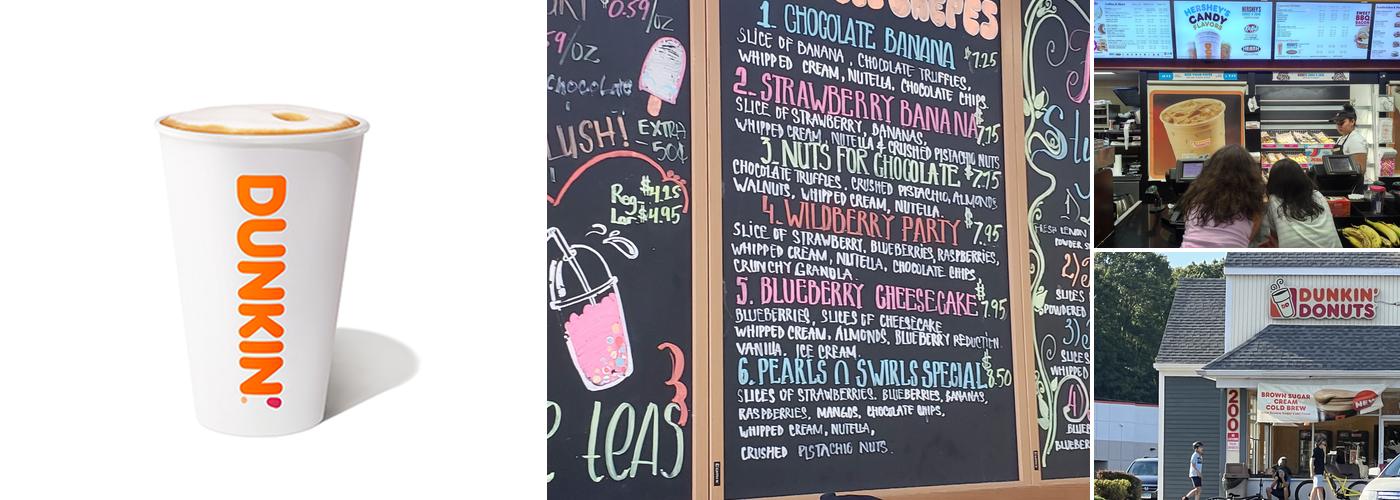 DUNKIN'
$0.59/oz
59/oz
Chocolate
LUSH!
EXTRA
50¢
Reg-$4.25
Lar$4.95
TEAS
CREPES
1. CHOCOLATE BANANA $7.25
SLICE OF BANANA, CHOCOLATE TRUFFLES,
WHIPPED CREAM, NUTELLA, CHOCOLATE CHIPS.
2. STRAWBERRY BANANA
SLICE OF STRAWBERRY, BANANAS,
WHIPPED CREAM, NUTELLA & CRUSHED PISTACHIO NUTS
3. NUTS FOR CHOCOLATE $7.75
CHOCOLATE TRUFFLES, CRUSHED PISTACHIO, ALMONDS
WALNUTS, WHIPPED CREAM, NUTELLA.
4. WILDBERRY PARTY $7.95
SLICE OF STRAWBERRY, BLUEBERRIES, RASPBERRIES,
WHIPPED CREAM, NUTELLA, CHOCOLATE CHIPS,
CRUNCHY GRANOLA.
5. BLUEBERRY CHEESECAKE $7.95
BLUEBERRIES, SLICES OF CHEESECAKE
WHIPPED CREAM, ALMONDS, BLUEBERRY REDUCTION.
VANILLA ICE CREAM.
6. PEARLS N SWIRLS SPECIAL $8.50
SLICES OF STRAWBERRIES. BLUEBERRIES, BANANAS,
RASPBERRIES, MANGOS, CHOCOLATE CHIPS,
WHIPPED CREAM, NUTELLA,
CRUSHED PISTACHIO NUTS.
2)
3)
HERSHEY'S
CANDY
FLAVORS
HERSHEY'S
HEATH
SWEET
BBQ
BACON
DUNKIN'
DONUTS
200
BROWN SUGAR
CREAM
COLD BREW
NEW